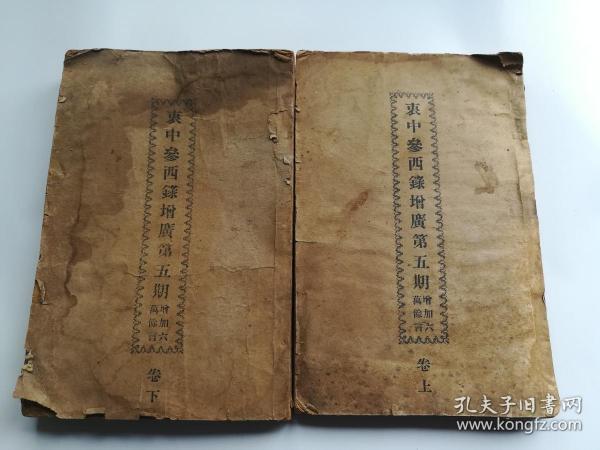 衷中參西錄增廣第五期
增加六
萬餘言
卷上
衷中參西錄增廣第五期
增加六
萬餘言
卷下
孔夫子旧書网
www.kongfz.com